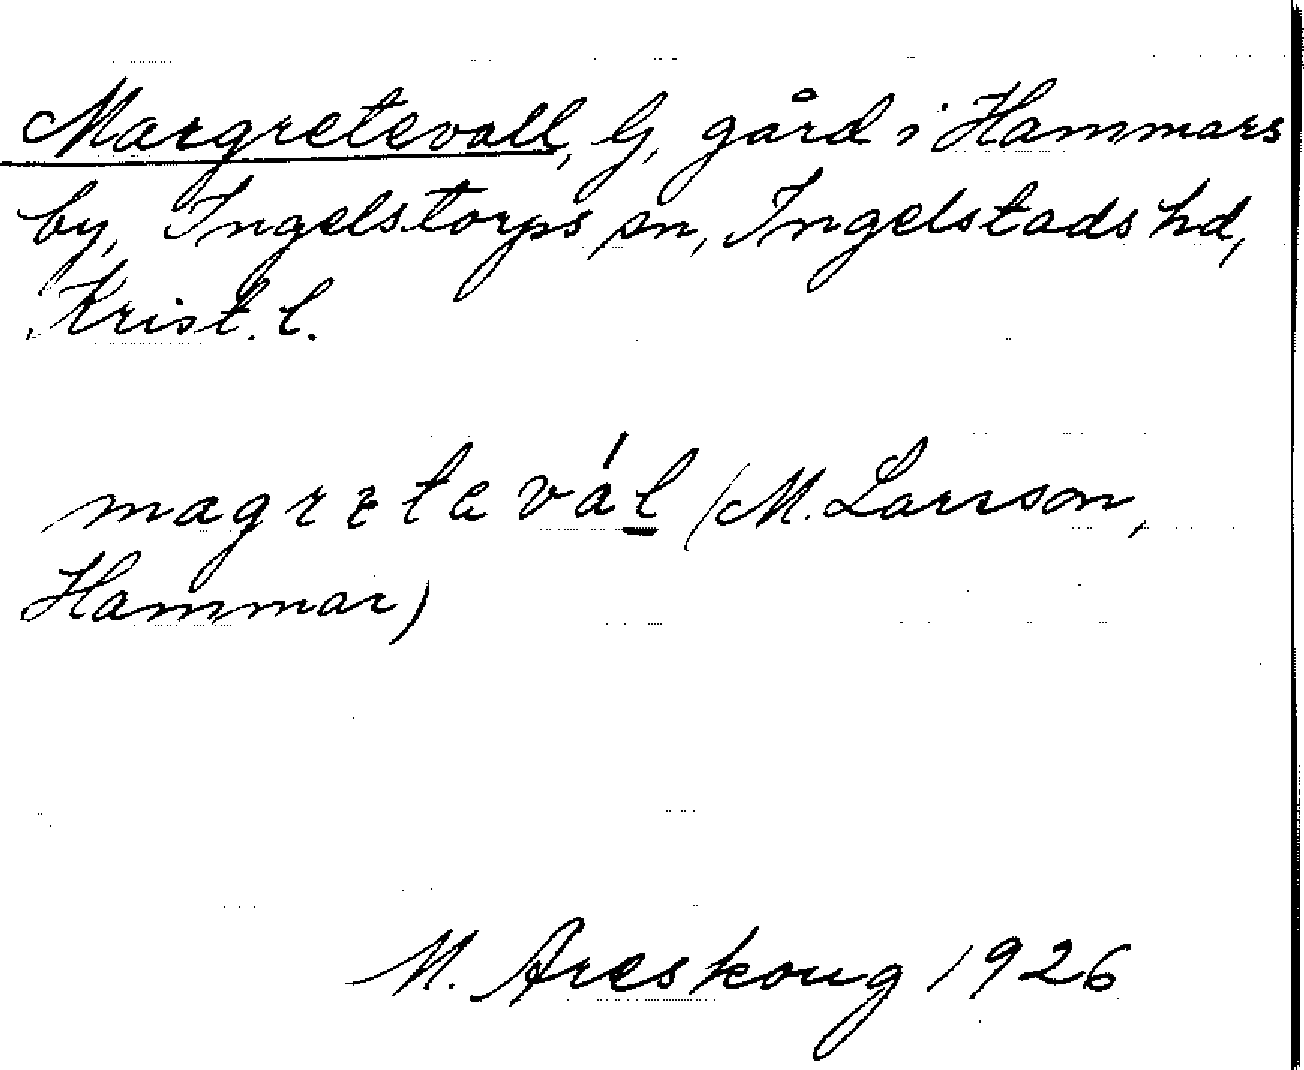 Margretevall, lj, gård i Hammars
by, Ingelstorps sn, Ingelstads hd,
Krist. l.
magrɛtavál (M. Larsson,
Hammar)
M. Areskoug 1926